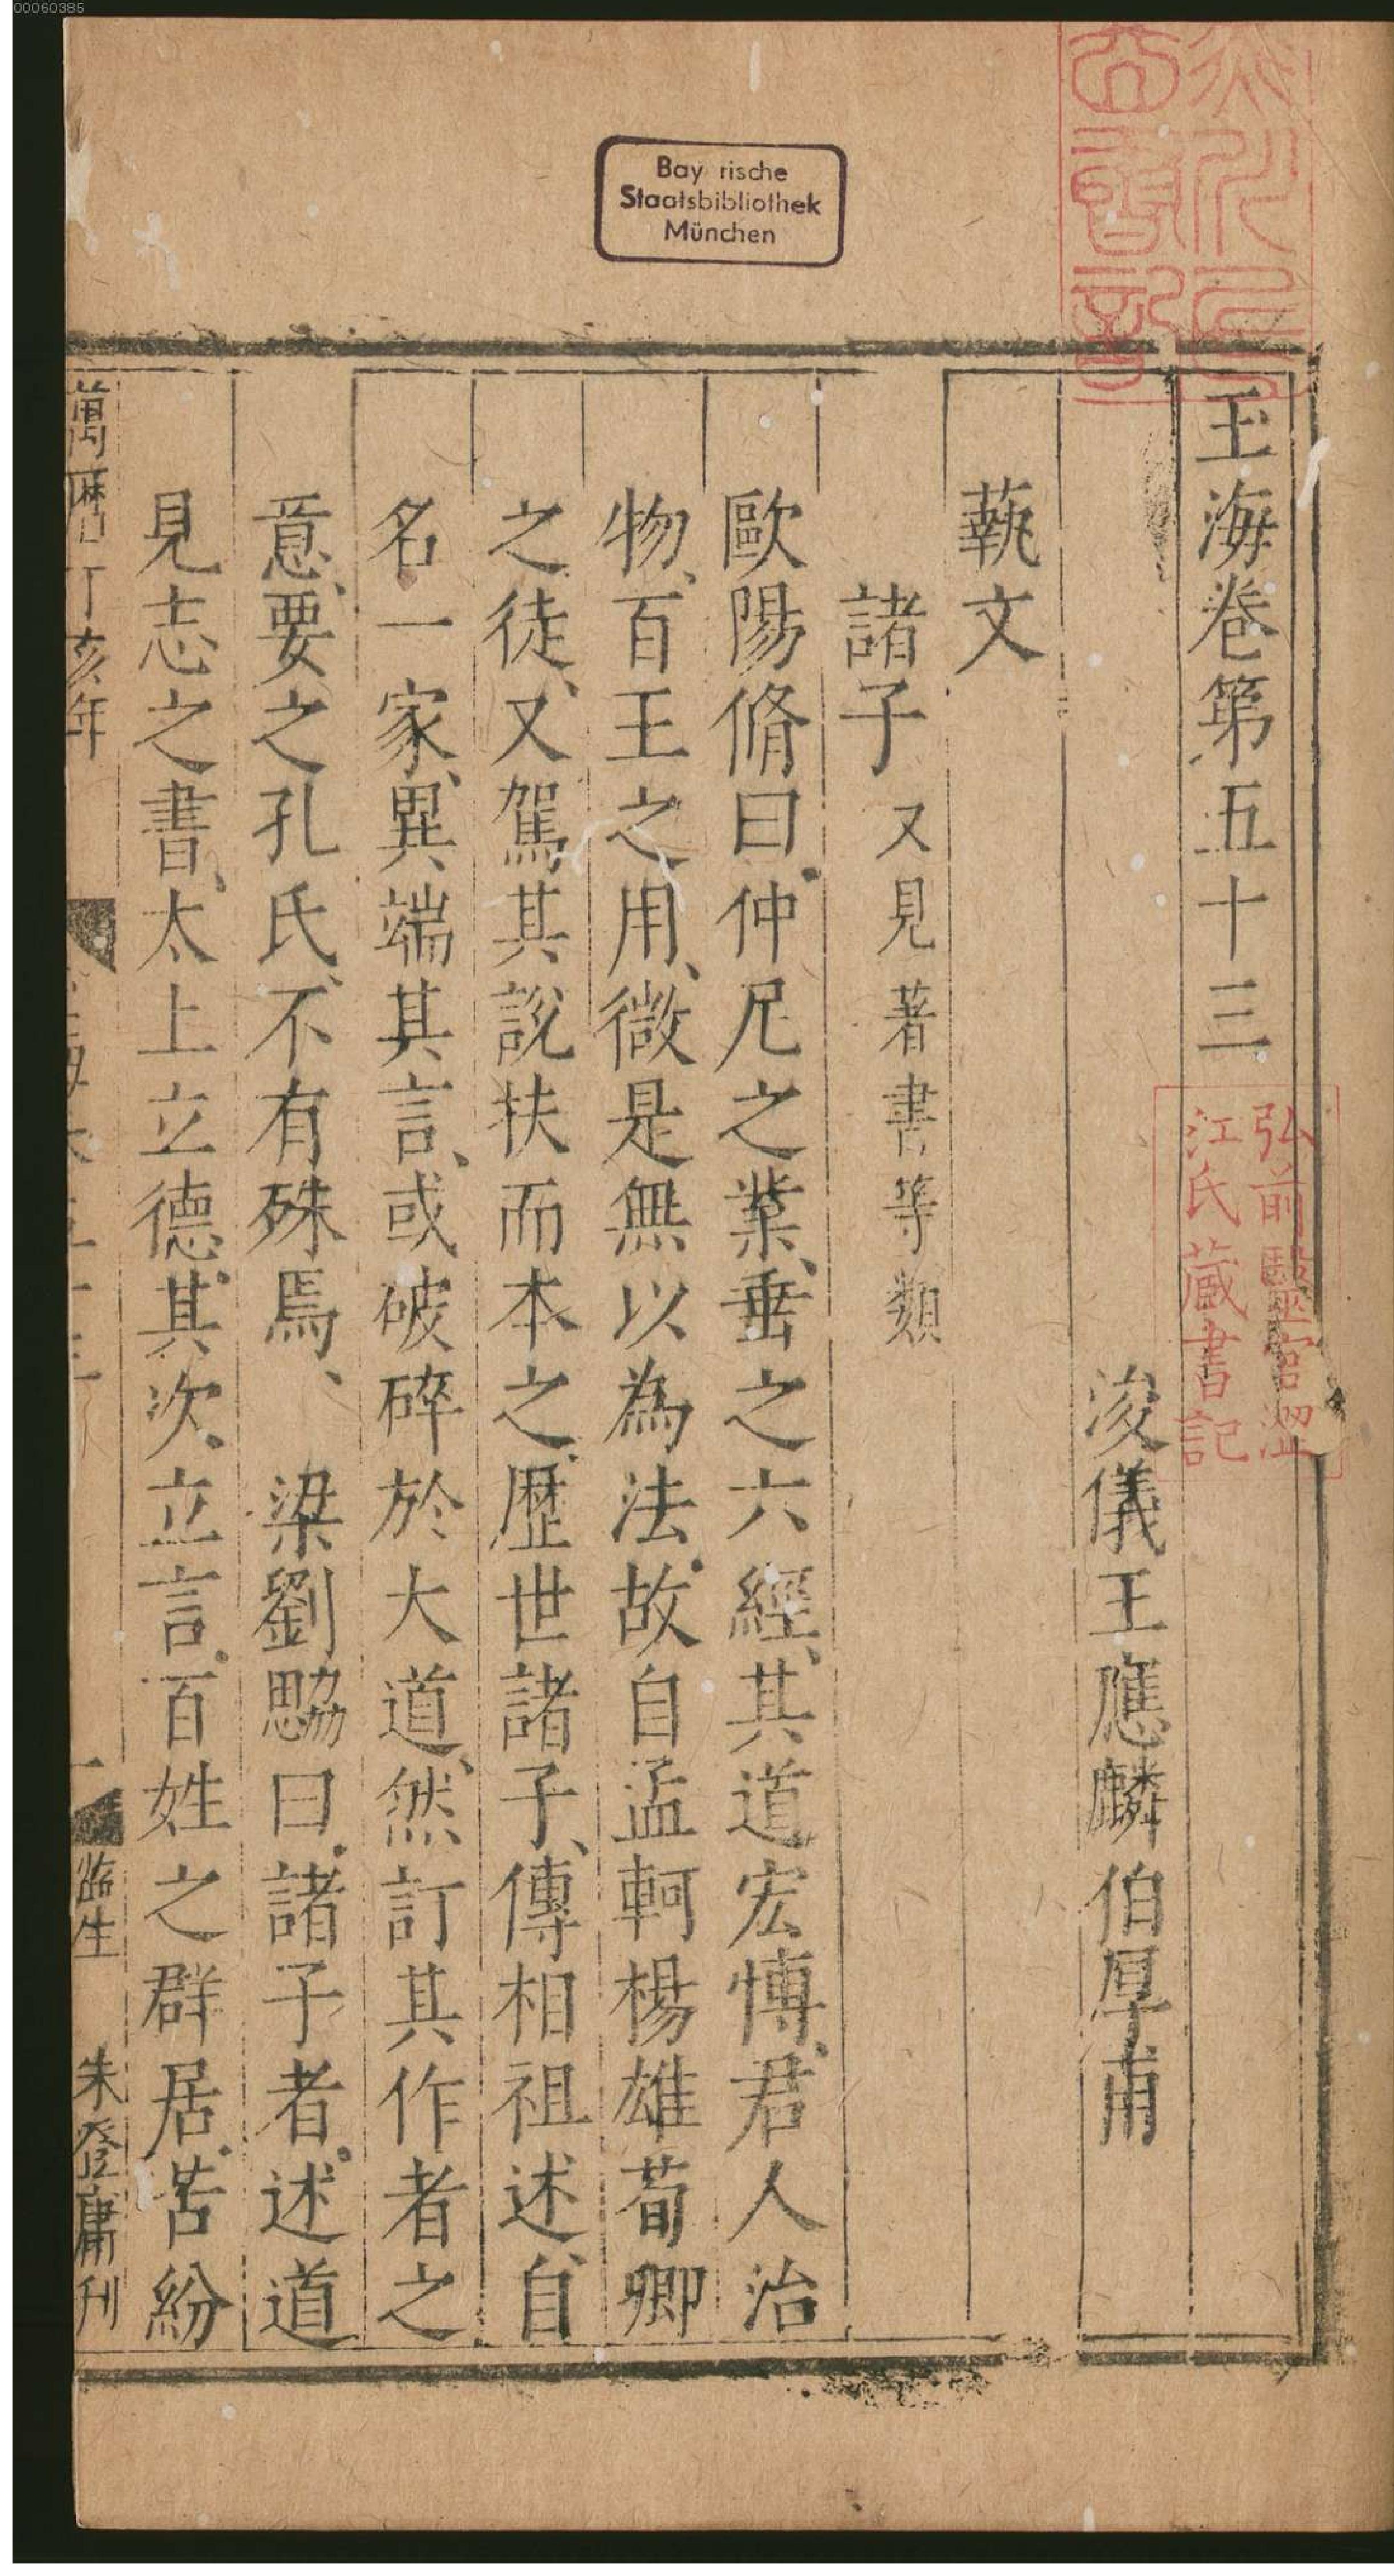 00060385
Bay rische
Staatsbibliothek
München
玉海卷第五十三
浚儀王應麟伯厚甫
蓺文
諸子 又見著書等類
歐陽脩曰仲尼之業、垂之六經、其道宏愽、君人治
物、百王之用、微是無以為法故自孟軻楊雄荀卿
之徒、又駕其說扶而本之、歷世諸子、傳相祖述、自
名一家、異端其言、或破碎於大道、然訂其作者之
意、要之孔氏、不有殊焉、 梁劉勰曰諸子者述道
見志之書、太上立德、其次、立言百姓之群居苦紛
萬曆丁亥年
監生 朱登庸刊
弘前醫官澀
江氏藏書記